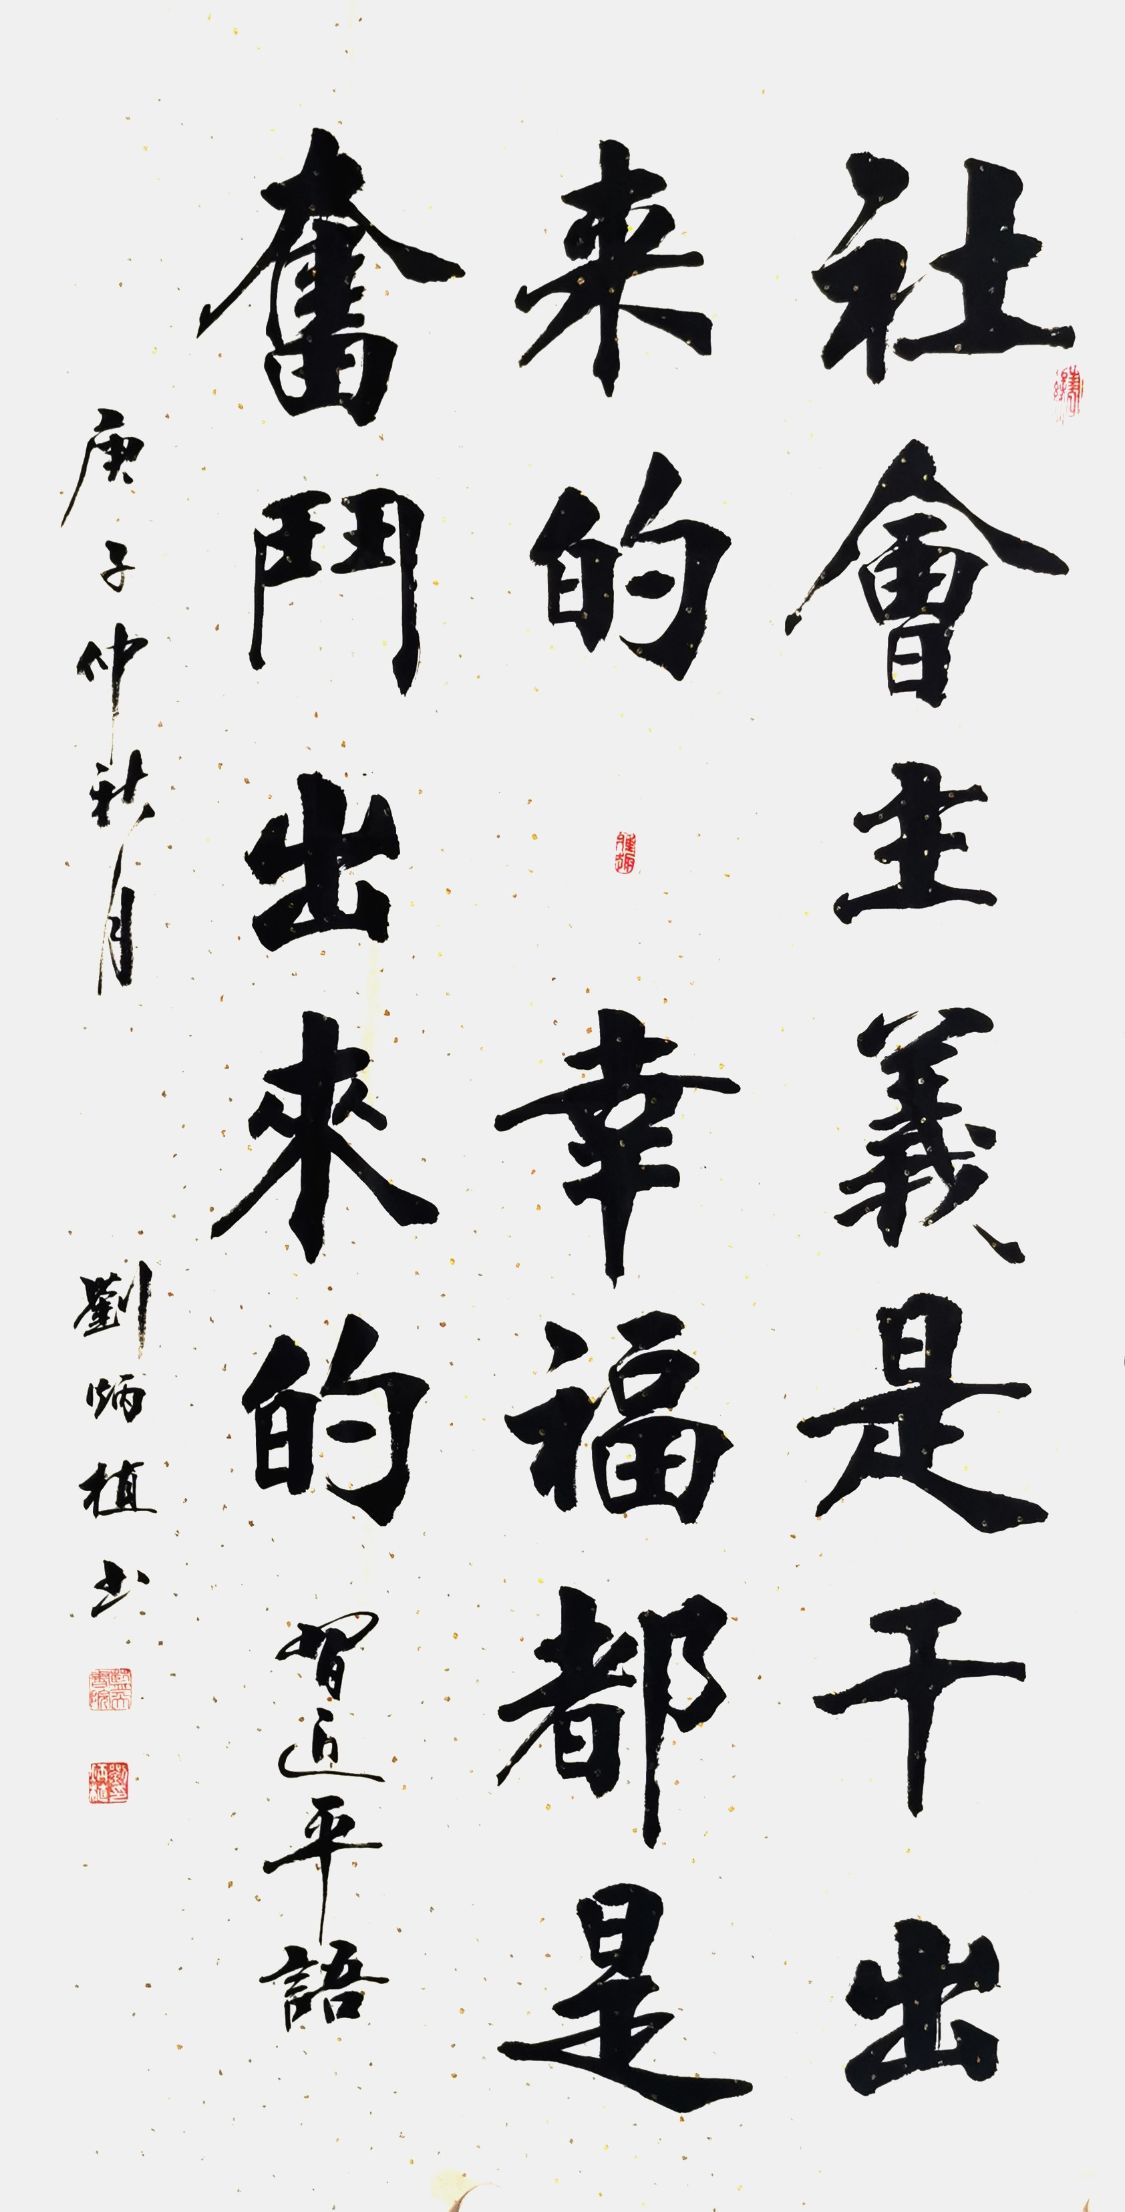 社會主義是干出
来的 幸福都是
奮鬥出來的 習近平語
庚子仲秋月 劉炳植书